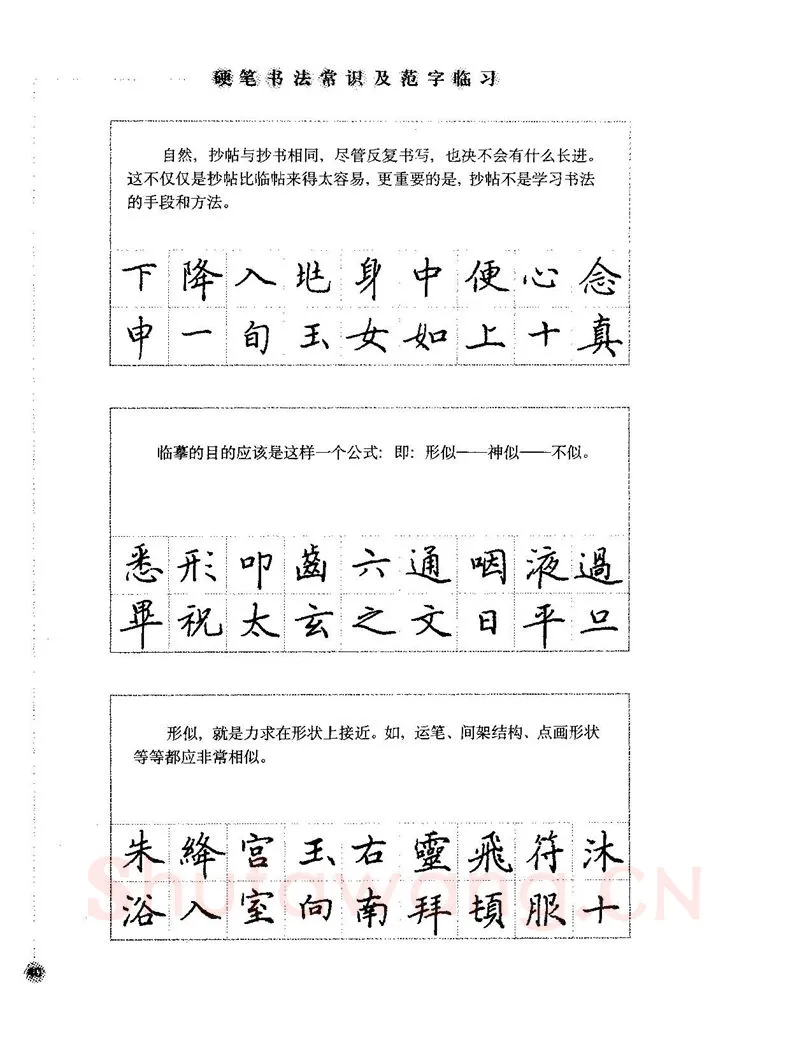 硬笔书法常识及范字临习
自然，抄帖与抄书相同，尽管反复书写，也决不会有什么长进。
这不仅仅是抄帖比临帖来得太容易，更重要的是，抄帖不是学习书法
的手段和方法。
下降入地身中便心念
申一旬玉女如上十真
临摹的目的应该是这样一个公式：即：形似——神似——不似。
悉形叩齒六通咽液過
畢祝太玄之文日平旦
形似，就是力求在形状上接近。如，运笔、间架结构、点画形状
等等都应非常相似。
朱絳宫玉右靈飛符沐
浴入室向南拜頓服十
Shufawang.CN
40